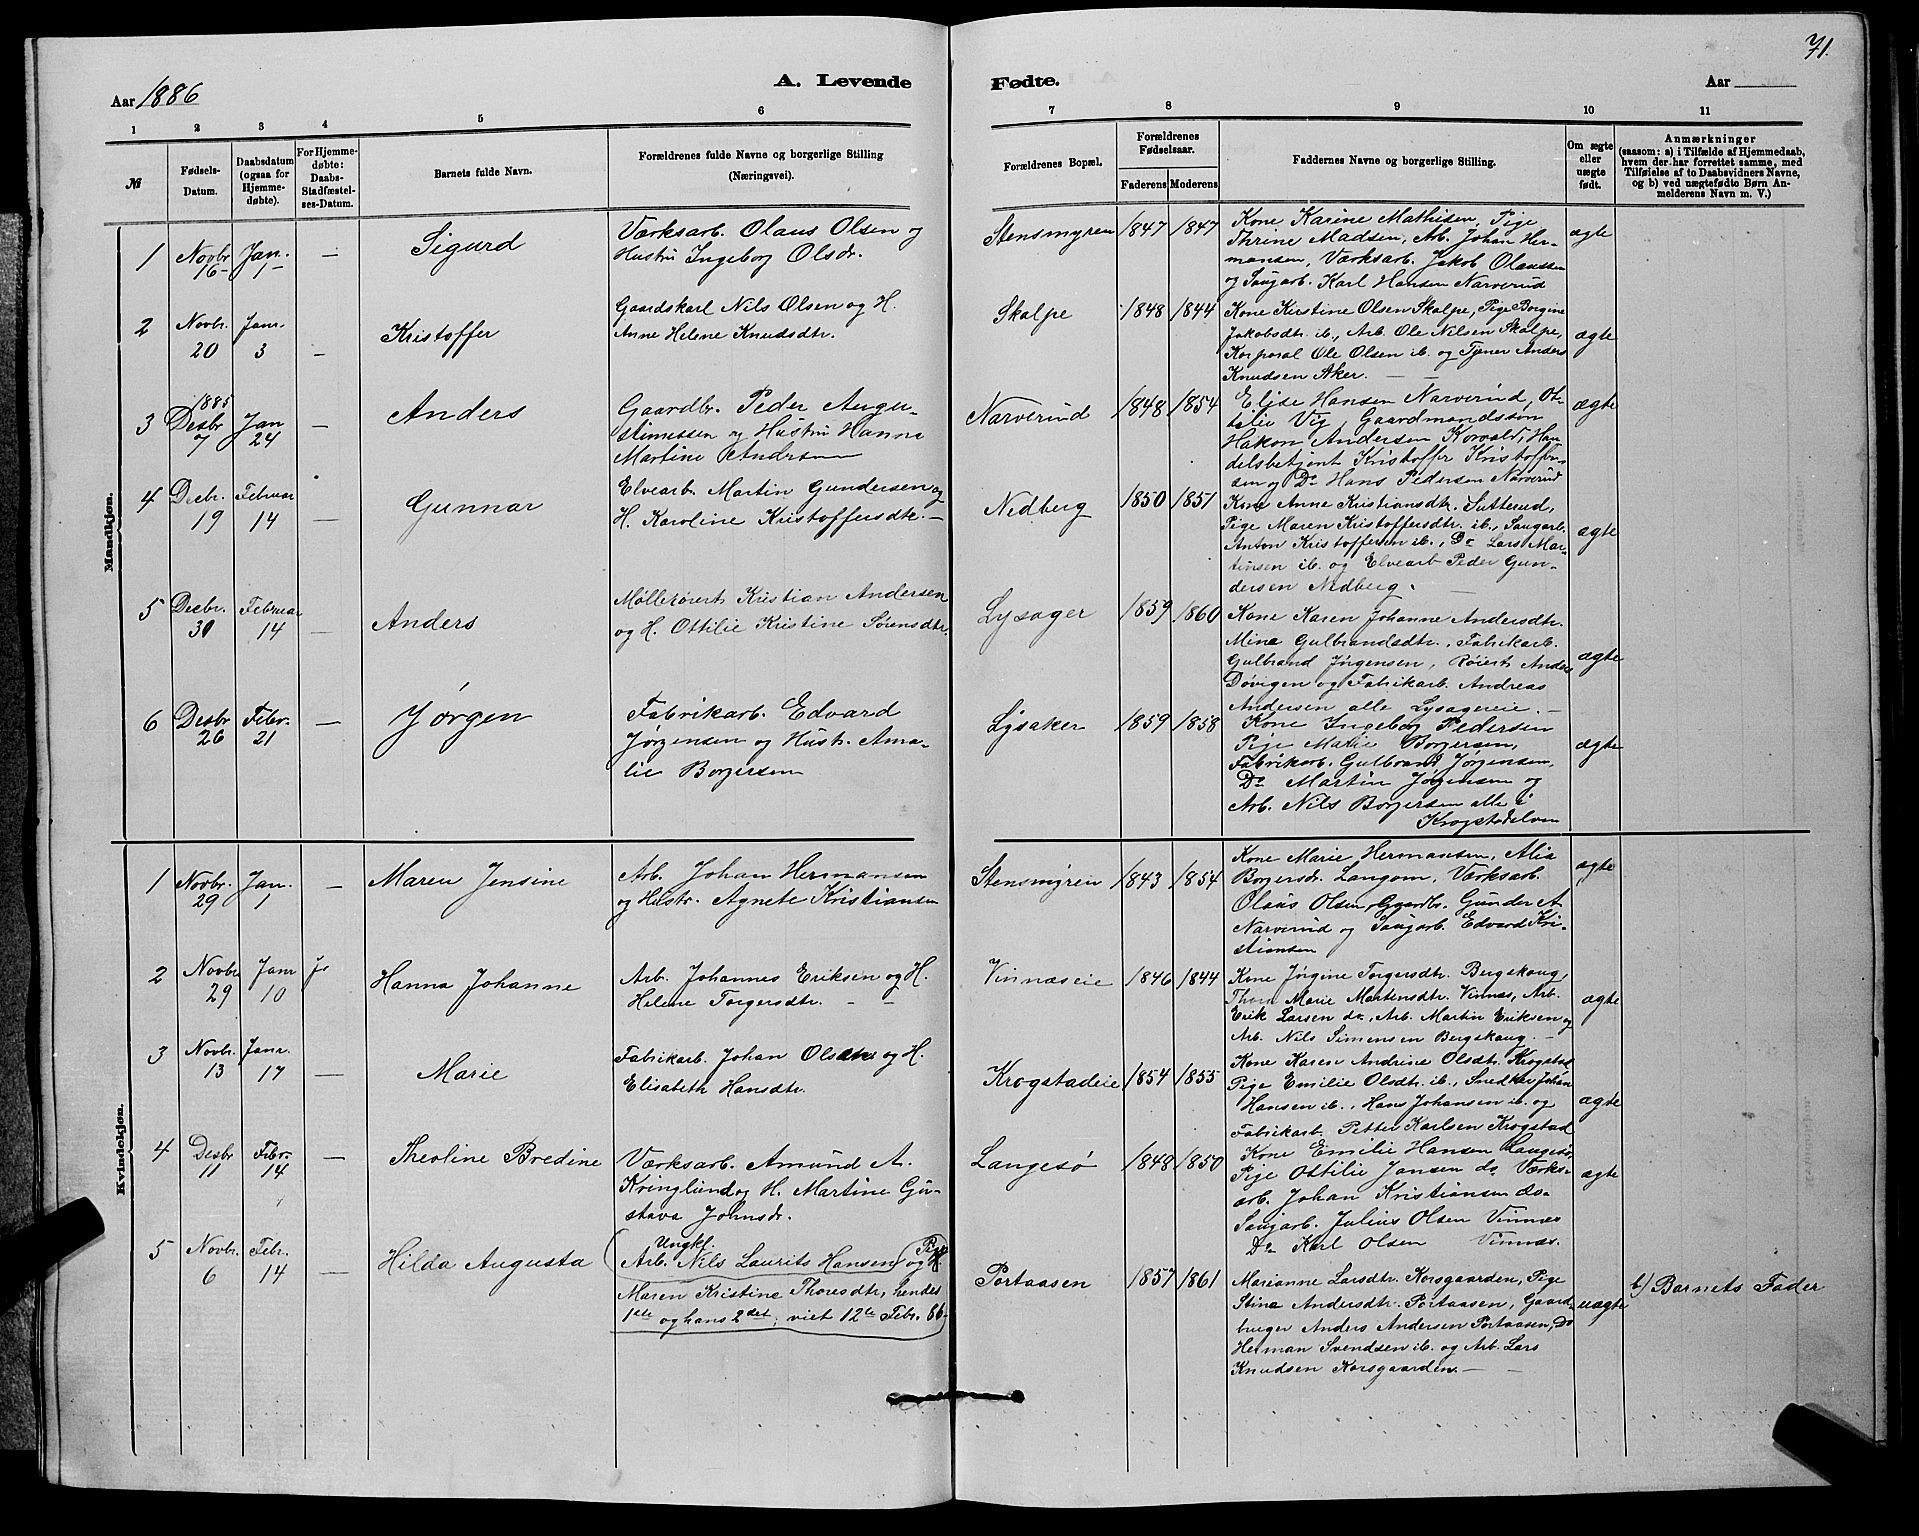 71.
Aar 1886
A. Levende
Fødte.
Aar
1 2 3 4 5 6 7 8 9 10 11
№
Fødsels-
Datum.
Daabsdatum
(ogsaa for
Hjemme-
døbte).
For Hjemme-
døbte:
Daabs-
Stadfæstel-
ses-Datum.
Barnets fulde Navn.
Forældrenes fulde Navne og borgerlige Stilling
(Næringsvei).
Forældrenes Bopæl.
Forældrenes
Fødselsaar.
Faderens Moderens
Faddernes Navne og borgerlige Stilling.
Om ægte
eller
uægte
født.
Anmærkninger
(saasom: a) i Tilfælde af Hjemmedaab,
hvem der har forrettet samme, med
Tilføielse af to Daabsvidners Navne,
og b) ved uægtefødte Børn An-
melderens Navn m. V.)
Mandkjøn.
1 Novbr. 16- Jan. 1- — Sigurd
Værksarb. Olaus Olsen og
Hustru Ingeborg Olsdr.
Stensmyren 1847 1847
Kone Karine Mathisen, Pige
Thrine Madsen, Arb. Johan Her-
mansen, Værksarb. Jakob Olaussen
og Saugarb. Karl Hansen Narverud
ægte
2 Novbr. 20 Janr. 3 — Kristoffer
Gaardskarl Nils Olsen og H.
Anne Helene Knudsdtr.
Skalpe 1848 1844
Kone Kirstine Olsen Skalpe, Pige Borgine
Jakobsdtr. ib., Arb. Ole Nilsen Skalpe,
Korporal Ole Olsen ib. og Tjener Anders
Knudsen Aker. — —
ægte
3 1885 Desbr 7 Jan 24 — Anders
Gaardbr. Peder Augu-
stinussen og Hustru Hanna
Martine Andrsen
Narverud 1848 1854
Elise Hansen Narverud, Ot-
tilie Vig Gaardmandssøn
Hakon Andersen Korvald, Han-
delsbetjent Kristoffer Kristoffer-
sen og Do Hans Pedersen Narverud
ægte
4 Decbr. 19 Februar 14 — Gunnar
Elvearb. Martin Gundersen og
H. Karoline Kristoffersdtr. —
Nedberg 1850 1851
Kone Anne Kristiansdtr. Sutterud,
Pige Maren Kristoffersdtr. ib., Saugarb.
Anton Kristoffersen ib., Do Lars Mar-
tinsen ib. og Elvearb Peder Gun-
dersen Nedberg. —
ægte
5 Decbr. 30 Februar 14 — Anders
Møllerøiert Kristian Andersen
og H. Ottilie Kristine Sørensdtr.
Lysager 1859 1860
Kone Karen Johanne Andersdtr.
Mina Gulbrandsdtr., Fabrikarb.
Gulbrand Jørgensen, Røiert Anders
Døvigen og Fabrikarb. Andreas
Andersen alle Lysagereie. —
ægte
6 Desbr 26 Febr. 21 — Jørgen
Fabrikarb. Edvard
Jørgensen og Hustr. Ama-
lie Borgersen
Lysaker 1859 1858
Kone Ingeborg Pedersen
Pige Marie Borgersen,
Fabrikarb. Gulbrand Jørgensen,
Do Martin Jørgensen og
Arb. Nils Borgersen alle i
Krogstadelven
ægte
Kvindekjøn.
1 Novbr. 29 Jan. 1 — Maren Jensine
Arb. Johan Hermansen
og Hustr. Agnete Kristiansen
Stensmyren 1843 1854
Kone Marie Hermansen, Alia
Borgersdr. Langom, Værksarb.
Olaus Olsen, Gaardbr. Gunder A
Narverud og Saugarb. Edvard Kri-
stiansen
ægte
2 Novbr 29 Janr 10 Ja Hanna Johanne
Arb. Johannes Eriksen og H.
Helene Torgersdtr. — —
Vinnæseie 1846 1844
Kone Jørgine Torgersdtr. Bergskaug,
Thora Marie Martensdtr. Vinnæs, Arb.
Erik Larsen do., Arb. Martin Eriksen og
Arb. Nils Simensen Bergskaug. —
ægte
3 Novbr. 13 Janr. 17 — Marie
Fabrikarb. Johan Olsen og H.
Elisabeth Hansdtr.
Krogstadeie 1854 1855
Kone Karen Andrine Olsdtr. Krogstad
Pige Emilie Olsdtr. ib., Snedker Johan
Hansen ib., Hans Johansen ib. og
Fabrikarb. Petter Karlsen Krogstad
ægte
4 Desbr 11 Febr. 14 — Theoline Bredine
Værksarb. Amund A.
Kringlund og H. Martine Gu-
stava Johnsdr.
Langesø 1848 1850
Kone Emilie Hansen Langesø,
Pige Ottilie Jansen do Værks-
arb. Johan Kristiansen do-
Saugarb. Julius Olsen Vinnæs
Do Karl Olsen Vinnæs.
ægte
5 Novbr. 6 Febr. 14 — Hilda Augusta
Ungkl. Pige
Arb. Nils Laurits Hansen og H.
Maren Kristine Thoresdtr, hendes
1ste og hans 2det, viet 12te Febr. 86.
Portaasen 1857 1861
Marianne Larsdtr. Korsgaarden, Pige
Stina Andersdtr. Portaasen, Gaard-
bruger Anders Andersen Portaasen, Do
Herman Svendsen ib. og Arb. Lars
Knudsen Korsgaarden. —
uægte
b/ Barnets Fader